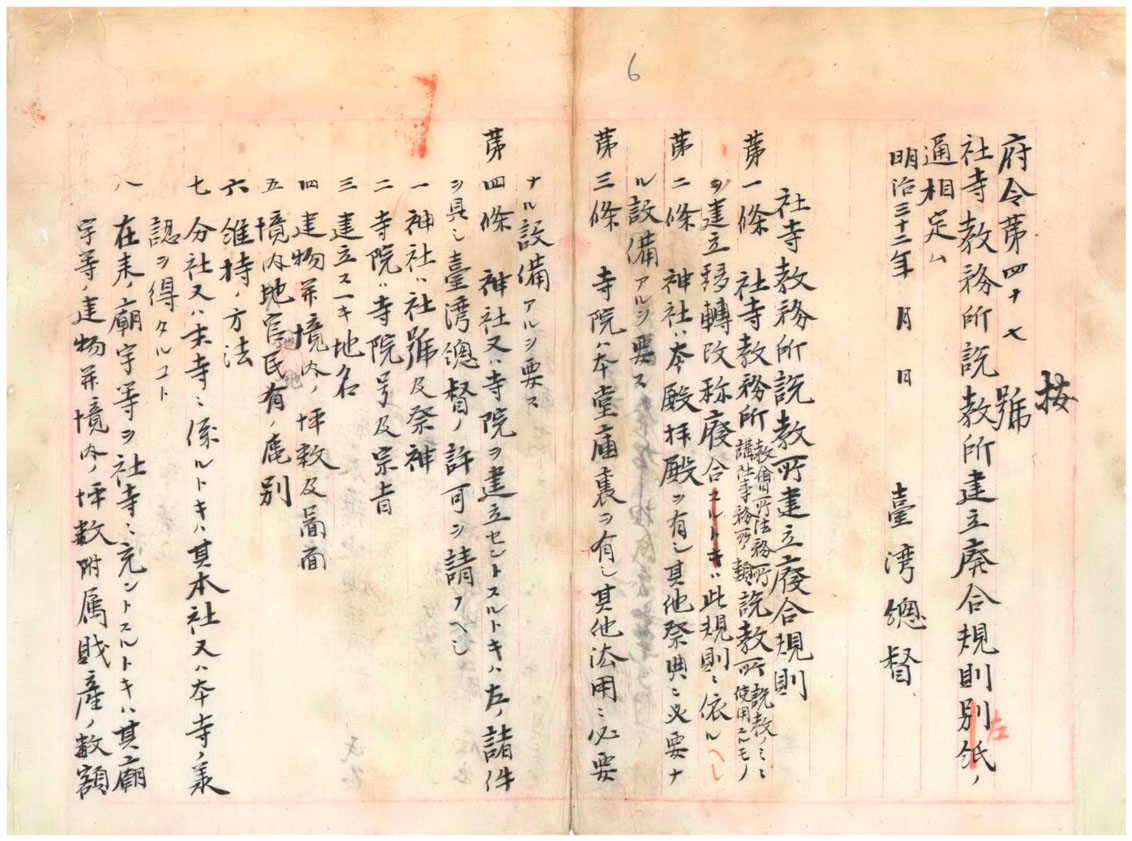 6
按
府令第四十七號
社寺教務所説教所建立廃合規則別紙ノ
左
通相定ム
明治三十二年 月 日
臺湾總督
社寺教務所説教所建立廢合規則
第一條 社寺教務所教會所法務所講社寺務所ノ類説教所説教ノミニ使用スルモノ
ヲ建立移轉改称廢合スルトキハ此規則ニ依ルヘシ
第二條 神社ハ本殿拝殿ヲ有シ其他祭典ニ必要ナ
ル設備アルヲ要ス
第三條 寺院ハ本堂庫裏ヲ有シ其他法用ニ必要
ナル設備アルヲ要ス
第四條 神社又ハ寺院ヲ建立セントスルトキハ左ノ諸件
ヲ具シ臺湾總督ノ許可ヲ請フヘシ
一 神社ハ社號及祭神
二 寺院ハ寺院号及宗旨
三 建立スヘキ地名
四 建物并境内ノ坪数及畾面
五 境内地官民有ノ區別
六 維持ノ方法
七 分社又ハ末寺ニ係ルトキハ其本社又ハ本寺ノ承
認ヲ得タルコト
八 在来ノ廟宇等ヲ社寺ニ充ントスルトキハ其廟
宇等ノ建物并境内ノ坪数附属財産ノ数額